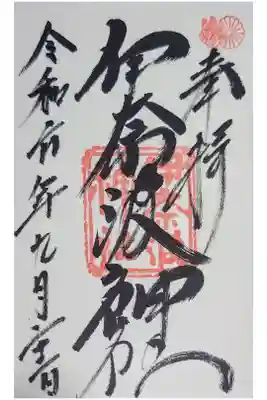 奉拝
伊奈波神社
令和元年九月